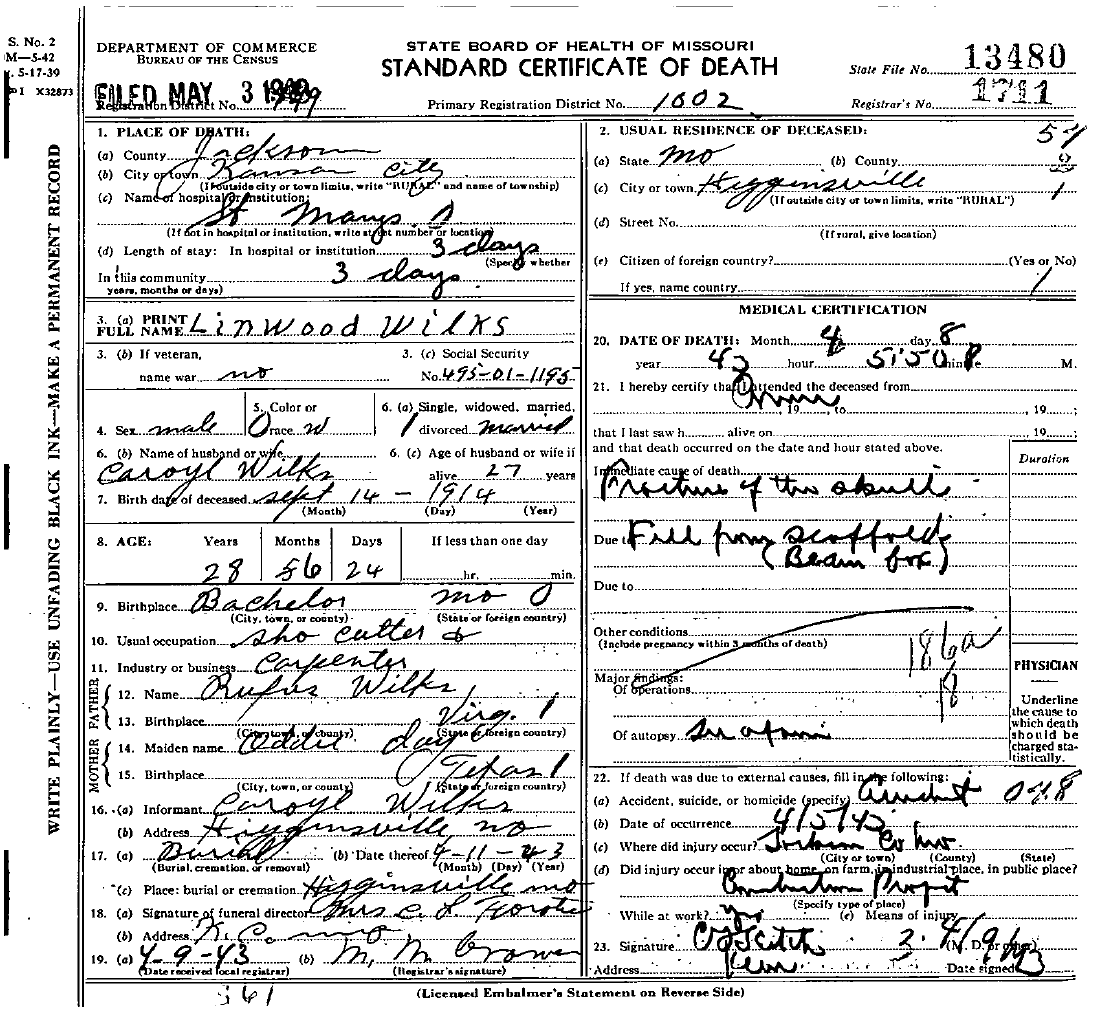 S. No. 2
M—5-42
5-17-39
X32873
WRITE PLAINLY—USE UNFADING BLACK INK—MAKE A PERMANENT RECORD
DEPARTMENT OF COMMERCE
BUREAU OF THE CENSUS
STATE BOARD OF HEALTH OF MISSOURI
STANDARD CERTIFICATE OF DEATH
State File No. 13480
FILED MAY 3
Registration District No.
Primary Registration District No. 1002
Registrar's No. 1711
1. PLACE OF DEATH:
(a) County Jackson
(b) City or town Kansas City
(If outside city or town limits, write "RURAL" and name of township)
(c) Name of hospital or institution:
St Marys
(If not in hospital or institution, write street number or location)
(d) Length of stay: In hospital or institution 3 days
(Specify whether
In this community 3 days
years, months or days)
3. (a) PRINT
FULL NAME Linwood Wilks
3. (b) If veteran,
name war no
3. (c) Social Security
No. 495-01-1195
4. Sex male
5. Color or
race W
6. (a) Single, widowed, married,
divorced married
6. (b) Name of husband or wife
Caroyl Wilks
6. (c) Age of husband or wife if
alive 27 years
7. Birth date of deceased Sept 14 - 1914
(Month) (Day) (Year)
8. AGE: Years Months Days If less than one day
28 56 24 hr. min.
9. Birthplace Bachelor Mo 0
(City, town, or county) (State or foreign country)
10. Usual occupation Sho cutter &
11. Industry or business Carpenter
FATHER
12. Name Rufus Wilks
13. Birthplace Virg. 1
(City, town, or county) (State or foreign country)
MOTHER
14. Maiden name Oddie day
15. Birthplace Texas 1
(City, town, or county) (State or foreign country)
16. (a) Informant Caroyl Wilks
(b) Address Higginsville, mo
17. (a) Burial (b) Date thereof 4-11-43
(Burial, cremation, or removal) (Month) (Day) (Year)
(c) Place: burial or cremation Higginsville mo
18. (a) Signature of funeral director Mrs C L
(b) Address K. C. mo
19. (a) 4-9-43 (b) M. M.
(Date received local registrar) (Registrar's signature)
561
2. USUAL RESIDENCE OF DECEASED: 54
(a) State Mo (b) County
(c) City or town Higginsville 1
(If outside city or town limits, write "RURAL")
(d) Street No.
(If rural, give location)
(e) Citizen of foreign country? (Yes or No)
If yes, name country 1
MEDICAL CERTIFICATION
20. DATE OF DEATH: Month 4 day 8
year 43 hour 5:50 min P. M.
21. I hereby certify that I attended the deceased from
, 19 , to , 19 ;
that I last saw h alive on , 19 ;
and that death occurred on the date and hour stated above.
Duration
Immediate cause of death
Fracture of the skull
Due to Fell from scaffold
(Beam box)
Due to
Other conditions
(Include pregnancy within 3 months of death)
186a
18
Major findings:
Of operations
Of autopsy
PHYSICIAN
Underline
the cause to
which death
should be
charged sta-
tistically.
22. If death was due to external causes, fill in the following:
(a) Accident, suicide, or homicide (specify) Accident
(b) Date of occurrence 4/5/43
(c) Where did injury occur? Jackson Co Mo
(City or town) (County) (State)
(d) Did injury occur in or about home, on farm, in industrial place, in public place?
Construction Project
(Specify type of place)
While at work? yes (e) Means of injury
23. Signature (M. D. or other)
Address Date signed 4/9/43
(Licensed Embalmer's Statement on Reverse Side)